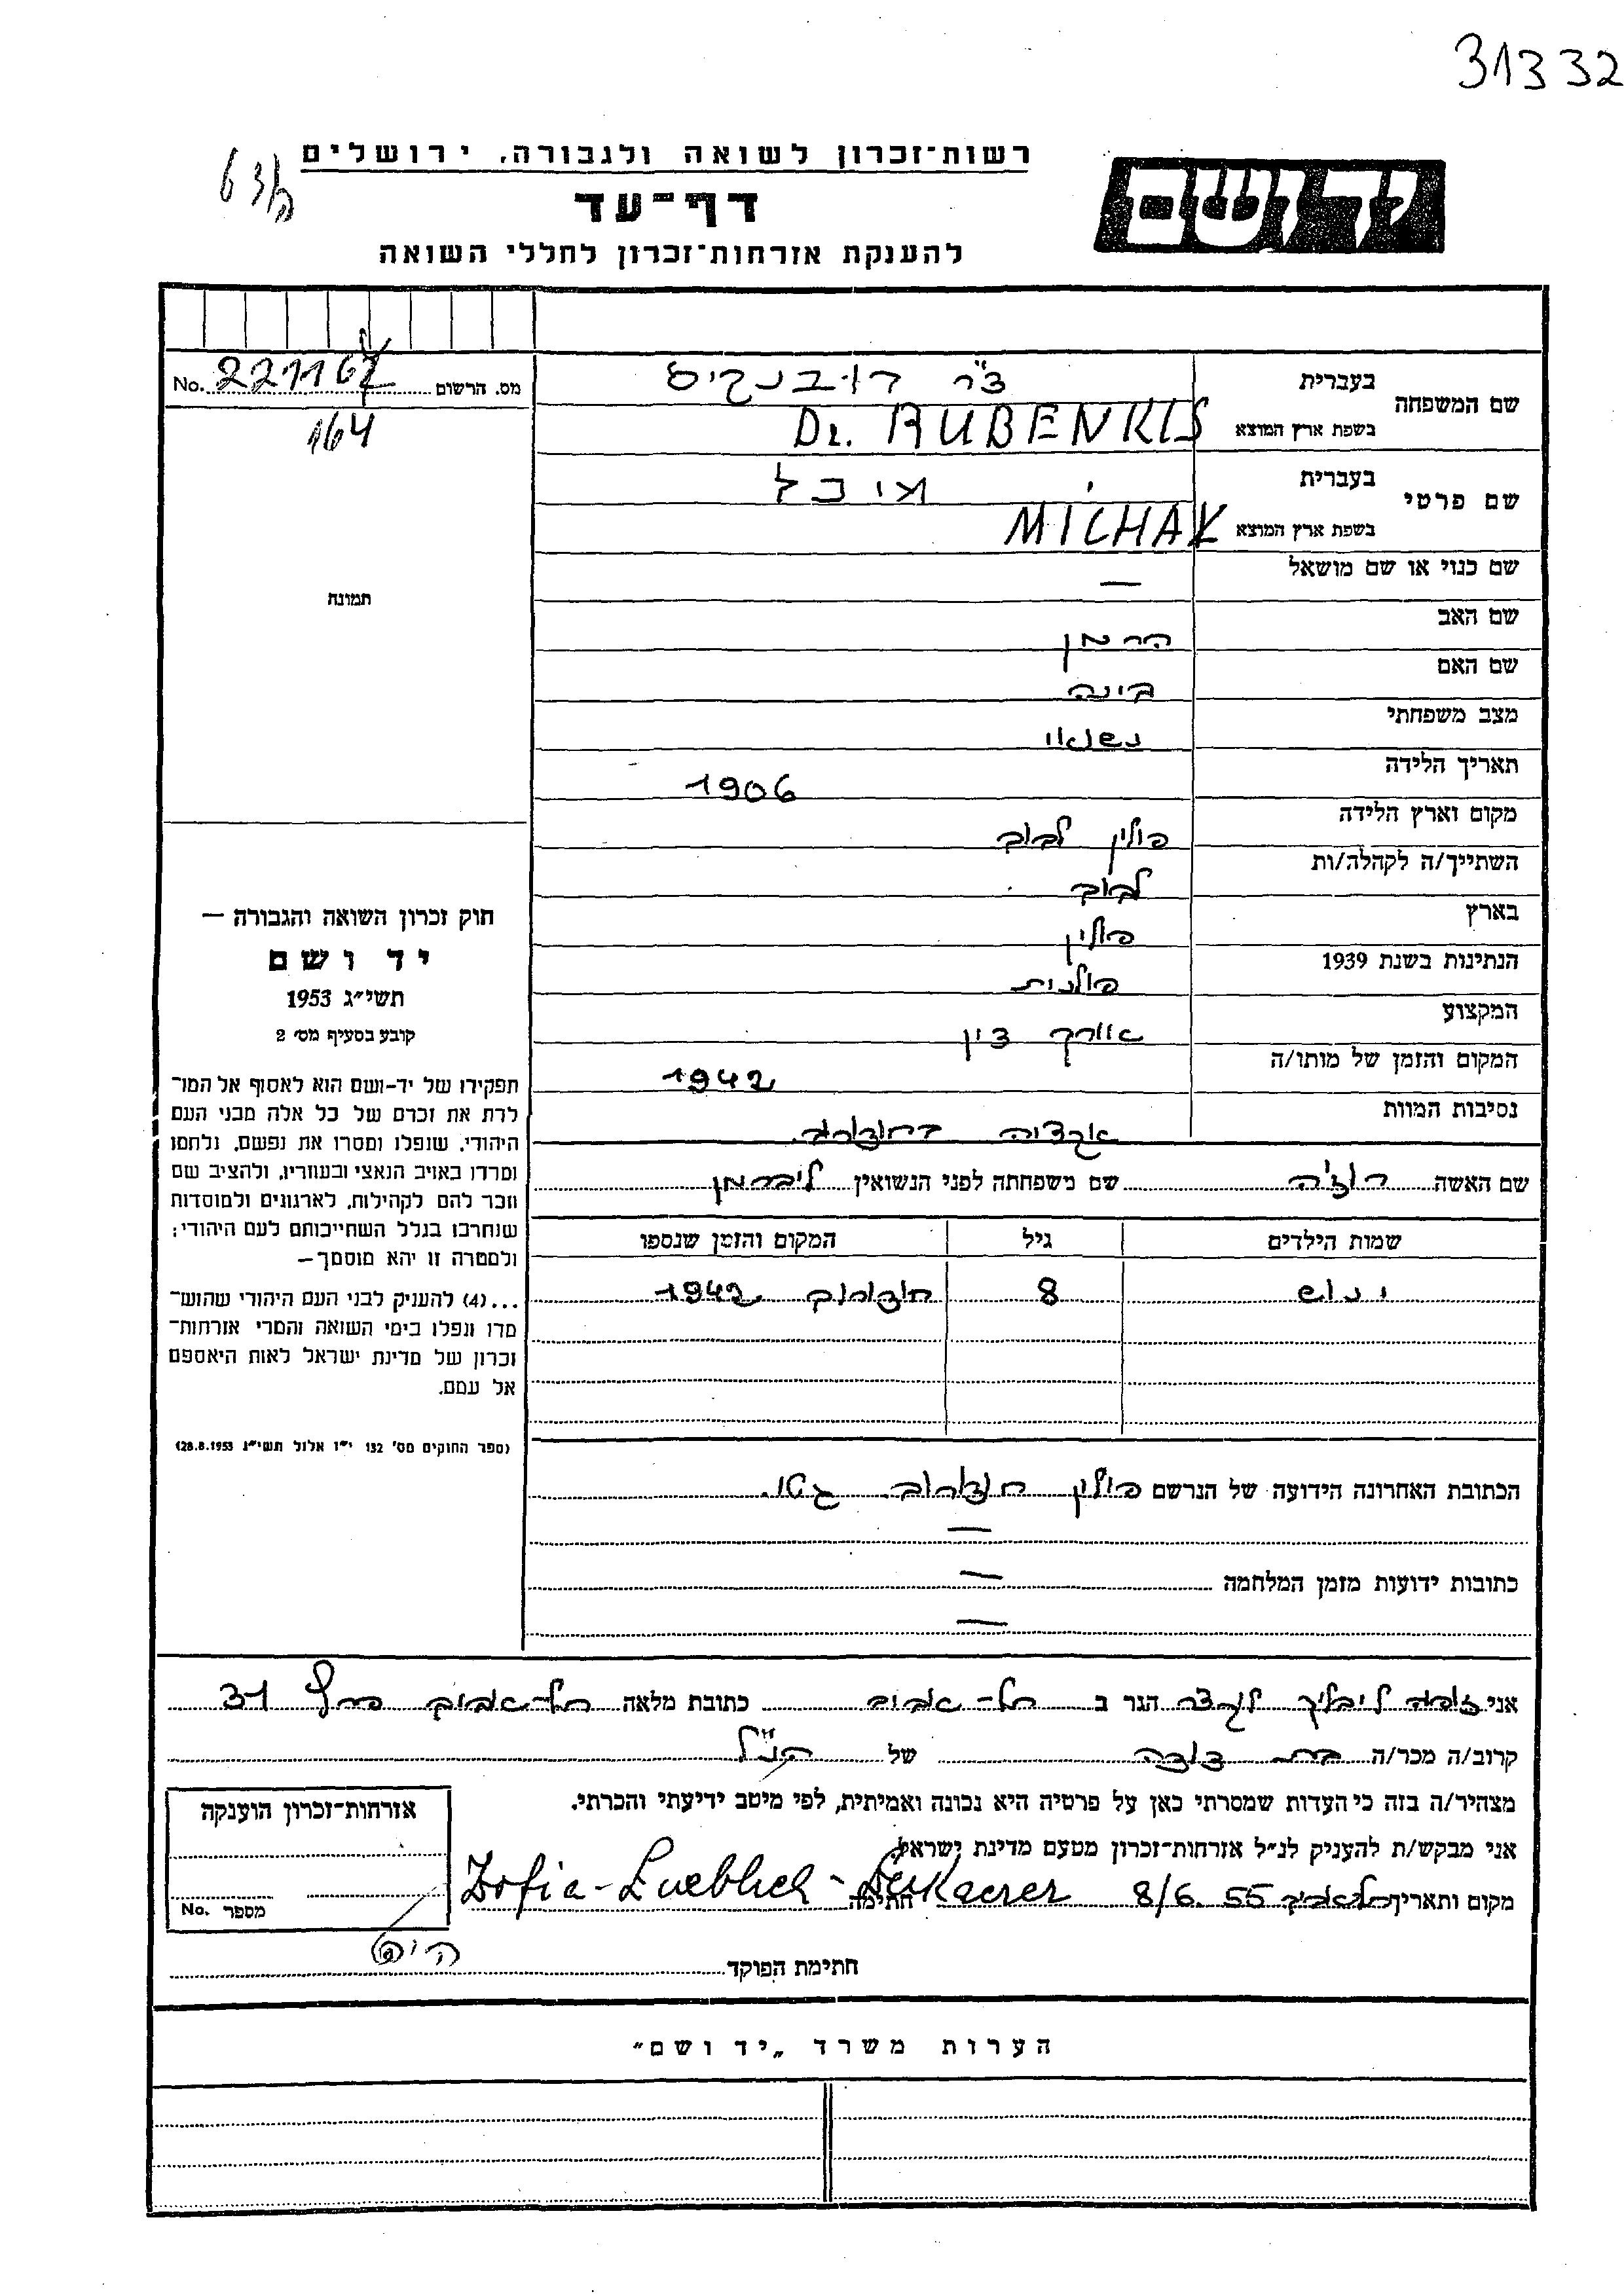 31332
רשות־זכרון לשואה ולגבורה, ירושלים
יד ושם
דף־עד
להענקת אזרחות־זכרון לחללי השואה
No. 221167 מס. הרשום
164
שם המשפחה
בעברית ד"ר רובנקיס
בשפת ארץ המוצא Dr. RUBENKIS
שם פרטי
בעברית מיכל
בשפת ארץ המוצא MICHAŁ
תמונה
שם כנוי או שם מושאל —
שם האב הרמן
שם האם בינה
מצב משפחתי נשואי
תאריך הלידה 1906
מקום וארץ הלידה פולין לבוב
השתייך/ה לקהלה/ות לבוב
בארץ פולין
הנתינות בשנת 1939 פולנית
המקצוע עורך דין
המקום והזמן של מותו/ה 1942
נסיבות המוות אקציה בחודורוב.
שם האשה רוז'ה שם משפחתה לפני הנשואין ליברמן
שמות הילדים גיל המקום והזמן שנספו
ינוש 8 חודורוב 1942
הכתובת האחרונה הידועה של הנרשם פולין חודורוב. גטו.
—
כתובות ידועות מזמן המלחמה —
—
חוק זכרון השואה והגבורה —
יד ושם
תשי״ג 1953
קובע בסעיף מס׳ 2
תפקידו של יד-ושם הוא לאסוף אל המו־
לדת את זכרם של כל אלה מבני העם
היהודי, שנפלו ומסרו את נפשם, נלחמו
ומרדו באויב הנאצי ובעוזריו, ולהציב שם
וזכר להם לקהילות, לארגונים ולמוסדות
שנחרבו בגלל השתייכותם לעם היהודי;
ולמטרה זו יהא מוסמך—
...(4) להעניק לבני העם היהודי שהוש־
מדו ונפלו בימי השואה והמרי אזרחות־
זכרון של מדינת ישראל לאות היאספם
אל עמם.
(ספר החוקים מס׳ 132 י״ז אלול תשי״ג 28.8.1953)
אני זופיה ליבליך הגר ב תל-אביב כתובת מלאה תל-אביב 31
קרוב/ה מכר/ה בת דודה של הנ"ל
מצהיר/ה בזה כי העדות שמסרתי כאן על פרטיה היא נכונה ואמיתית, לפי מיטב ידיעתי והכרתי.
אני מבקש/ת להעניק לנ״ל אזרחות־זכרון מטעם מדינת ישראל.
מקום ותאריך תל אביב 8/6. 55 חתימה Zofia-
חתימת הפוקד
אזרחות־זכרון הוענקה
מספר No.
הערות משרד „יד ושם״